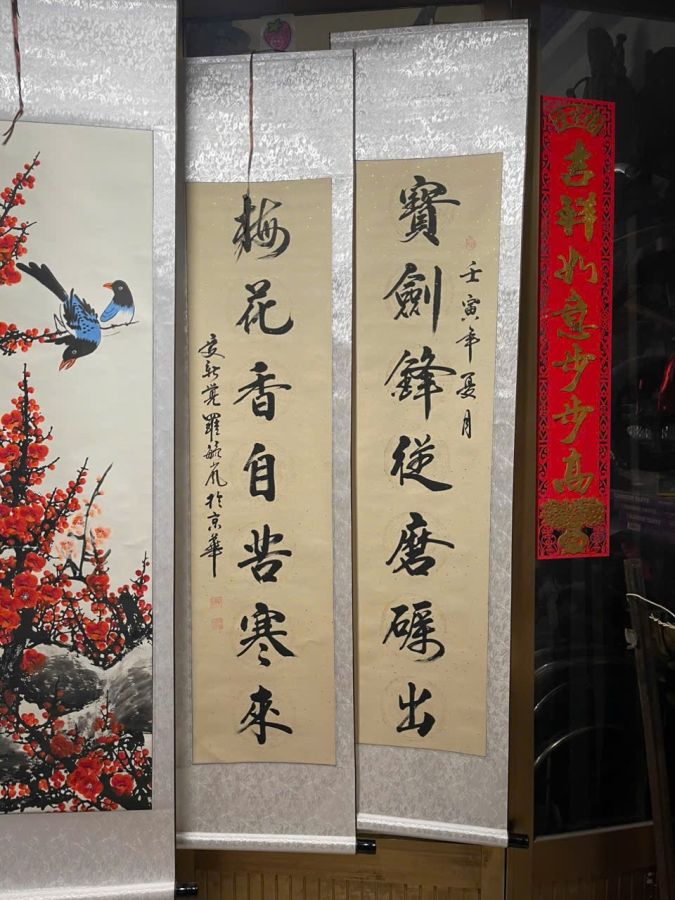 吉祥如意步步高
壬寅年夏月
寶劍鋒従磨礪出
梅花香自苦寒來
愛新覺羅毓嵐於京華